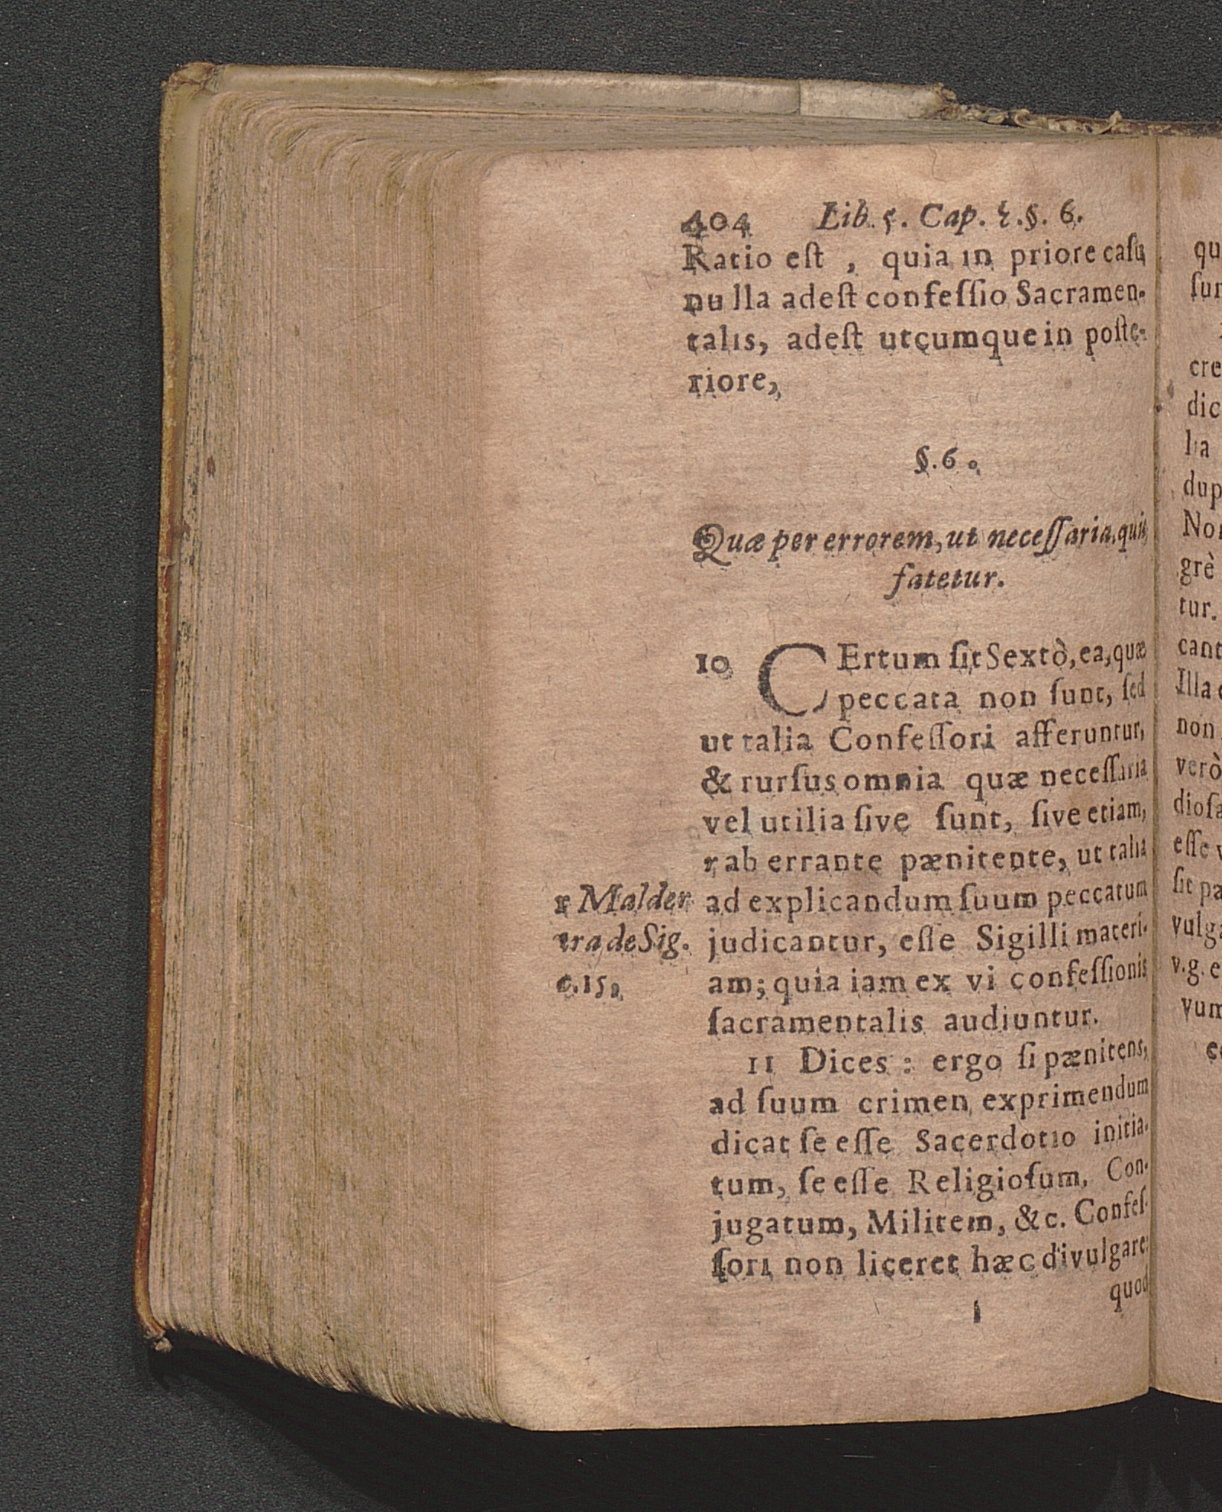 404 Lib. 5. Cap. 2. §. 6.
Ratio eſt , quia in priore caſu
nulla adeſt confeſſio Sacramen-
talis, adeſt utcumque in poſte-
riore,
§. 6.
Quæ per errorem, ut neceſſaria, quis
fatetur.
10 CErtum ſit Sextò, ea, quæ
peccata non ſunt, ſed
ut talia Confeſſori afferuntur,
& rurſus omnia quæ neceſſaria
vel utilia ſive ſunt, ſive etiam,
r ab errante pænitente, ut talia
r Malder ad explicandum ſuum peccatum
tra de Sig. judicantur, eſſe Sigilli materi-
c. 15, am; quia iam ex vi confeſſionis
ſacramentalis audiuntur.
11 Dices : ergo ſi pænitens,
ad ſuum crimen exprimendum
dicat ſe eſſe Sacerdotio initia-
tum, ſe eſſe Religioſum, Con-
jugatum, Militem, &c. Confeſ-
ſori non liceret hæc divulgare:
quod
qu
ſur
cre
dic
la
dup
Non
grè
tur.
cant
Illa
non
verò
dioſa
eſſe v
ſit pa
vulga
v.g. e
vum